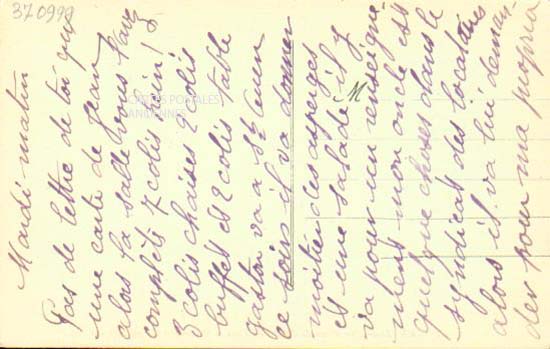 370999
Mardi matin
Pas de lettre de toi qu'
une carte de Jean
alors la salle vous l'avez
complète 7 colis loin!
3 colis chaises 2 colis
buffet et 2 colis table
gaston va a St Ouen
ce soir il va donner
moitier des asperges
et une salade il y
va pour un renseigne
ment mon oncle est
quelque choses dans le
syndicat des locataires
alors il va lui deman-
der pour ma propria
M
CARTES POSTALES
ANCIENNES